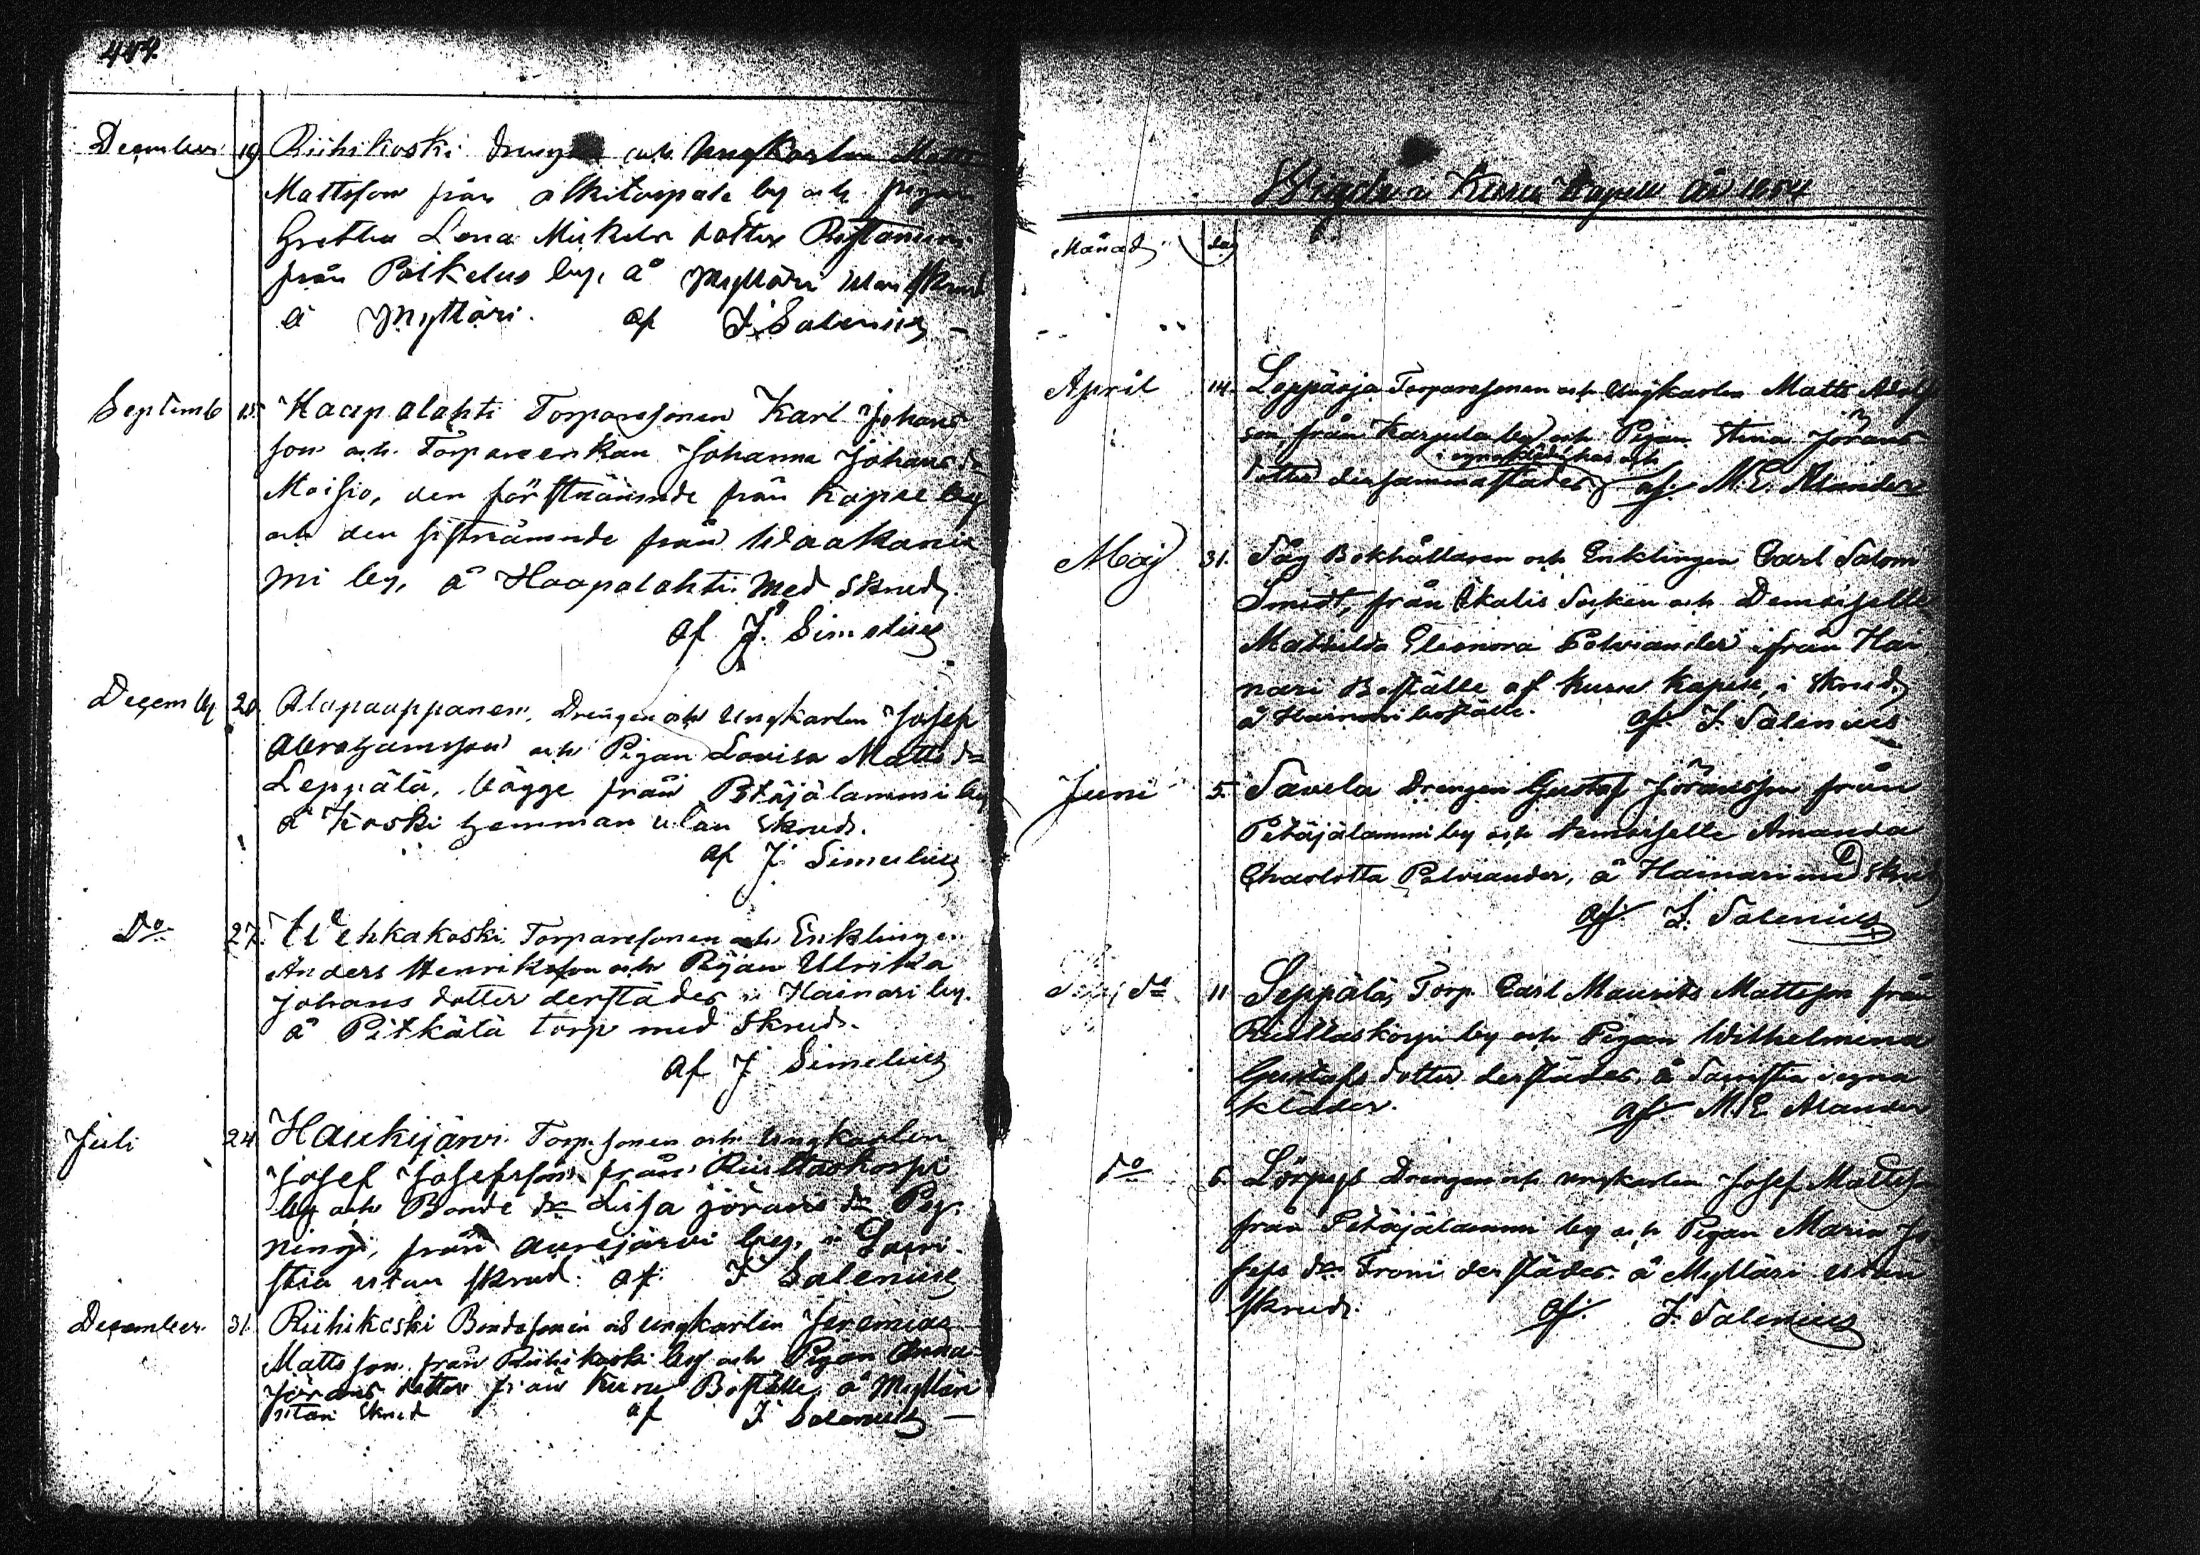 December 19. Riihikoski drengen och Ungkarlen Matts
Mattsson från Alkitoipale by och pigan
Gretha Lena Mickels dotter
från Poikelus by, å Mylläri utan skrud
å Mylläri. af J. Salenius
Septemb 15. Haapalahti Torparesonen Karl Johans
son och Torpareenkan Johanna Johans dr
Moisio, den förstnämnde från Kapee by
och den sistnämnde från Waakanie
mi by, å Haapalahti med skrud.
af J. Simelius
Decemb 20. Alapaappanen, Drengen och Ungkarlen Josef
Abrahamsson och Pigan Lovisa Matts dr
Leppälä, bägge från Petäjälammi by
å Koski hemman utan skrud.
af J. Simelius
Do 27. Wehkakoski Torparesonen och Enklingen
Anders Henriksson och Pigan Ulrika
Johans dotter derstädes i Hainari by.
å Pitkälä torp med skrud.
af J Simelius
Juli 24. Haukijärvi Torp.sonen och Ungkarlen
Josef Josefsson från Riuttaskorpi
by och Bonde dr Lisa Jörans dr
från Aurejärvi by,
utan skrud. af J Salenius
December 31. Riihikoski Bondesonen och ungkarlen Jeremias
Matts son från Riihikoski by och Pigan Anna
Jörans dotter från Kuru Boställe, å Mylläri
utan skrud af J Salenius
Wigde i Kuru Kapell År 1854
Månad dag
April 14. Leppäoja Torparesonen och Ungkarlen Matts Adolf
son, från Karpula by och Pigan Stina Jörans
i egna kläder
dotter dersammastädes af M. E. Alander
Maj 31. Såg Bokhållaren och Enklingen Carl Salom
Smedt, från Ikalis Socken och Demoiselle
Mathilda Eleonora Polviander ifrån Hai
nari Boställe af Kuru Kapell, i skrud,
å Hainari boställe. af J. Salenius
Juni 5. Savela Drengen Gustaf Jöransson från
Petäjälammi by och demoiselle Amanda
Charlotta Polviander, å Hainari med skrud
af J. Salenius
do 11 Seppälä, Torp. Carl Maurits Mattsson från
Riuttaskorpi by och Pigan Wilhelmina
Gustafs dotter derstädes, å i egna
kläder. af M. E Alander
do 6. Lörpys Drengen och ungkarlen Josef Mattsson
från Petäjälammi by och Pigan Maria Jo
sefs dr Froni derstädes. å Mylläri utan
skrud. af. J. Salenius